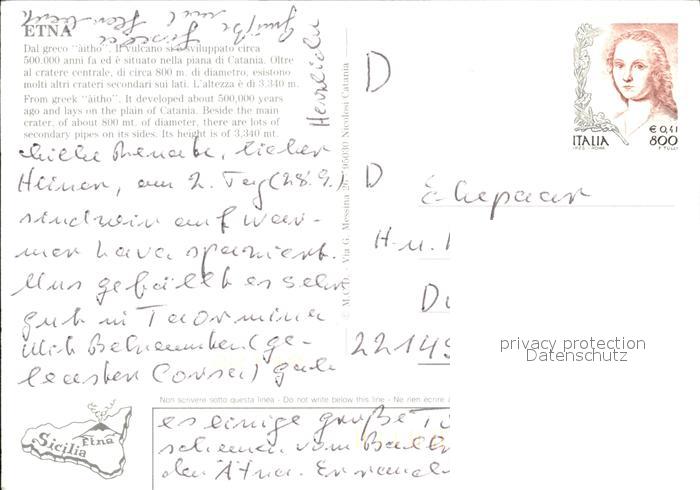 ETNA
Dal greco "àitho". Il vulcano si è sviluppato circa
500.000 anni fa ed è situato nella piana di Catania. Oltre
al cratere centrale, di circa 800 m. di diametro, esistono
molti altri crateri secondari sui lati. L'altezza è di 3.340 m.
From greek "àitho". It developed about 500,000 years
ago and lays on the plain of Catania. Beside the main
crater, of about 800 mt. of diameter, there are lots of
secondary pipes on its sides. Its height is of 3,340 mt.
Liebe Renate, lieber
Heiner, am 2. Tag (28.9.)
sind wir auf war-
mer Lava spaziert.
Uns gefällt es sehr
gut in Taormina
Mit Bekannten (ge-
leaster Corsa) gab
es einige große
schauen vom
den Ätna.
Herzliche
Grüße
und
Via G. Messina 26 - 95030 Nicolosi Catania
D
D
Ehepaar
H. u.
22149
ITALIA
€ 0,41
800
Non scrivere sotto questa linea - Do not write below this line - Ne rien écrire
Sicilia
Etna
privacy protection
Datenschutz